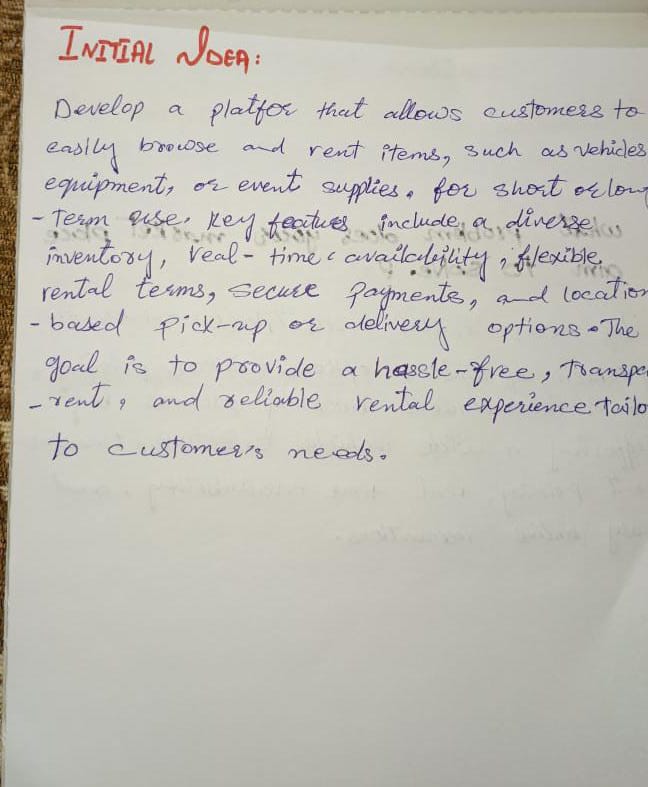 INITIAL IDEA:
Develop a platfor that allows customers to
easily browse and rent items, such as vehicles
equipment, or event supplies. for short or long
- Term use. Key featues include a diverse
inventory, real - time availability, flexible
rental terms, secure payments, and location
- based pick-up or delivery options. The
goal is to provide a hassle-free, transpa
- rent, and reliable rental experience tailo
to customer's needs.